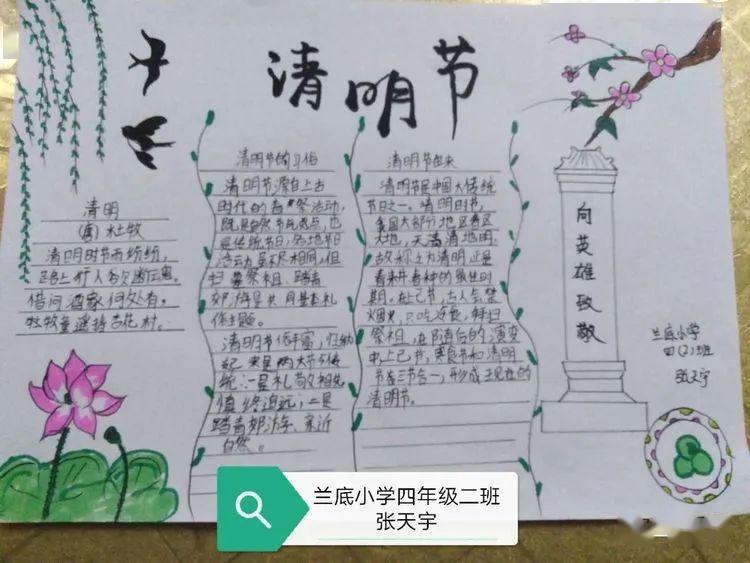 清明节
清明
(唐) 杜牧
清明时节雨纷纷,
路上行人欲断魂。
借问酒家何处有。
牧童遥指杏花村。
清明节的习俗
清明节源自上古
时代的春祭活动,
既是自然节气点,也
是传统节日,各地节日
活动虽不尽相同,但
扫墓祭祖、踏青
郊游是共同基本礼
俗主题。
清明节俗丰富,归纳
起来是两大节令传
统:一是礼敬祖先
慎终追远;二是
踏青郊游、亲近
自然。
清明节由来
清明节是中国大传统
节日之一。清明时节,
我国大部分地区春回
大地,天清地明,
故称之为清明,正是
春耕春种的
期,
祭祖,在随后的演变
中上己节,寒食节和清明
节合三节合一,形成了现在的
清明节。
向英雄致敬
兰底小学
四(2)班
张天宇
兰底小学四年级二班
张天宇